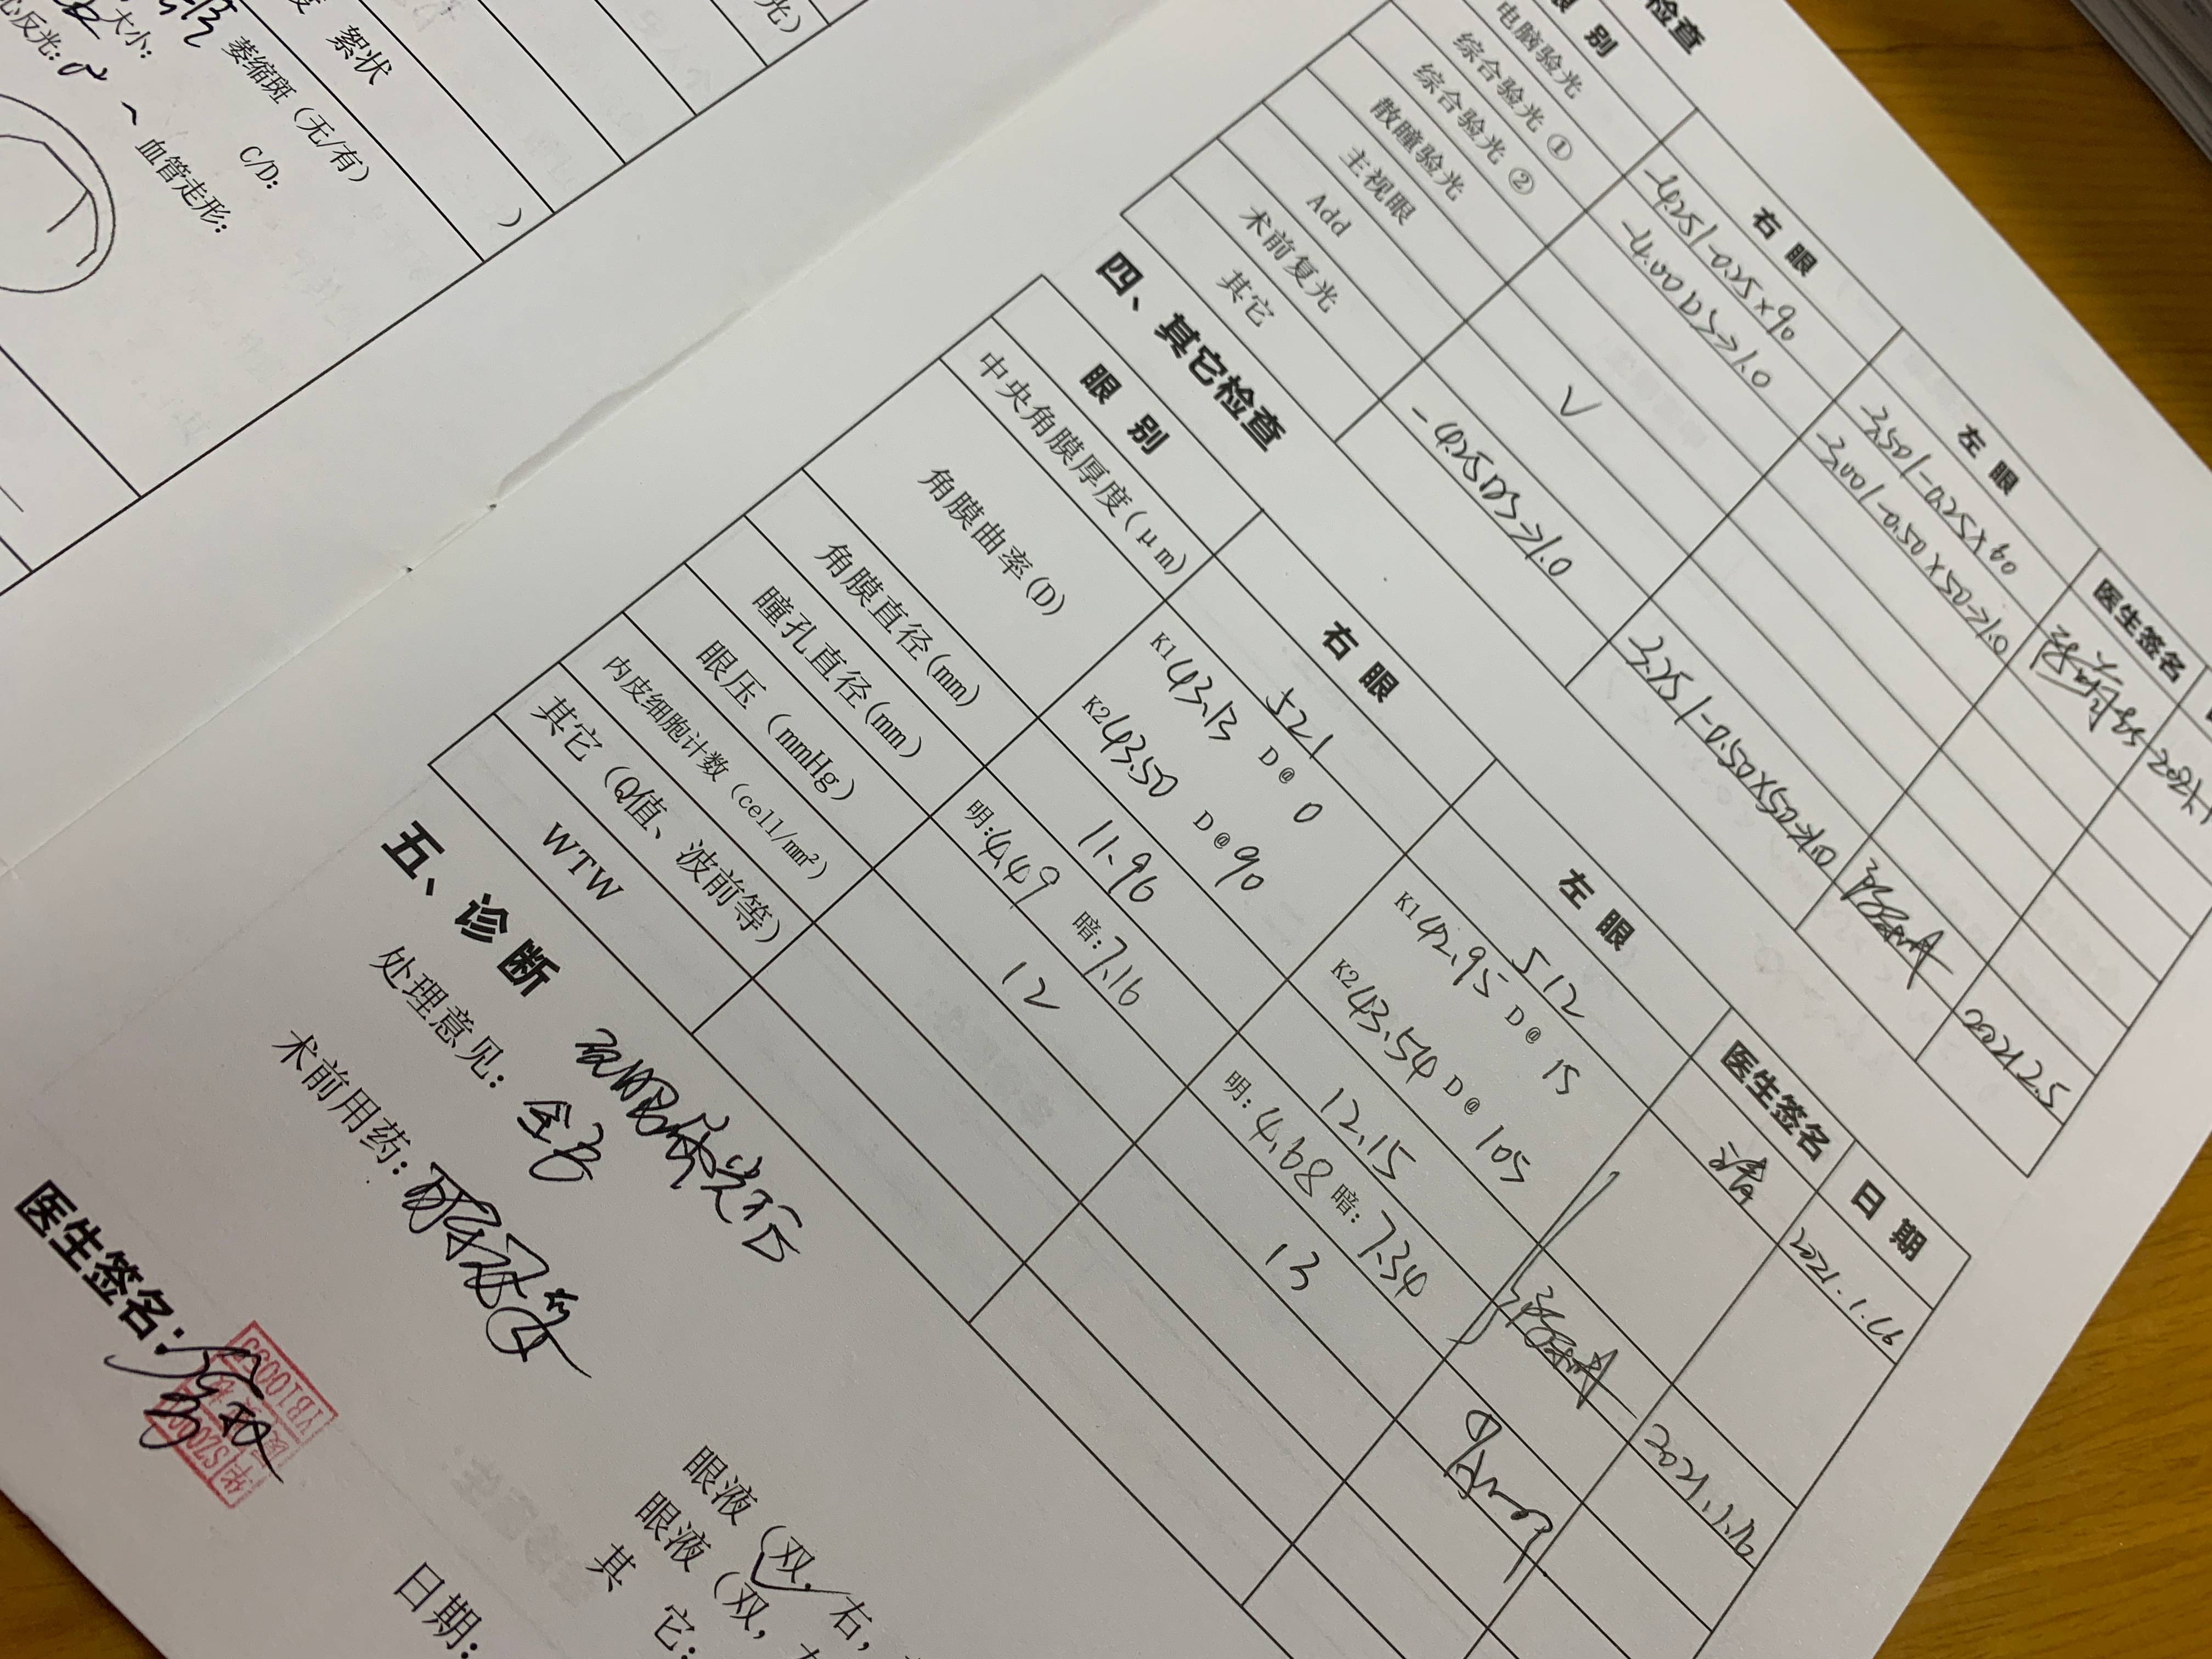 大小：
心反光：
萎缩斑（无/有）
絮状
C/D：
血管走形：
）
光）
检查
眼 别
右 眼
左 眼
医生签名
电脑验光
-4.25/-0.25×90
-3.50/-0.25×60
综合验光 ①
-4.00DS→1.0
-3.00/-0.50×50→1.0
综合验光 ②
散瞳验光
主视眼
√
Add
术前复光
-4.25DS→1.0
-3.25/-0.50×50→1.0
2021.2.5
其它
四、其它检查
眼 别
右 眼
左 眼
医生签名
日 期
中央角膜厚度(μm)
521
512
2021.1.16
角膜曲率(D)
K1 43.13 D@ 0
K1 42.95 D@ 15
K2 43.50 D@ 90
K2 43.54 D@ 105
角膜直径(mm)
11.96
12.15
瞳孔直径(mm)
明:4.49 暗:7.16
明:4.68 暗:7.34
2021.1.16
眼压（mmHg）
12
13
内皮细胞计数（cell/mm²）
其它（Q值、波前等）
WTW
五、诊断
处理意见：
术前用药：
眼液（双，右，
眼液（双，
其 它：
医生签名：
YB10035
日期：